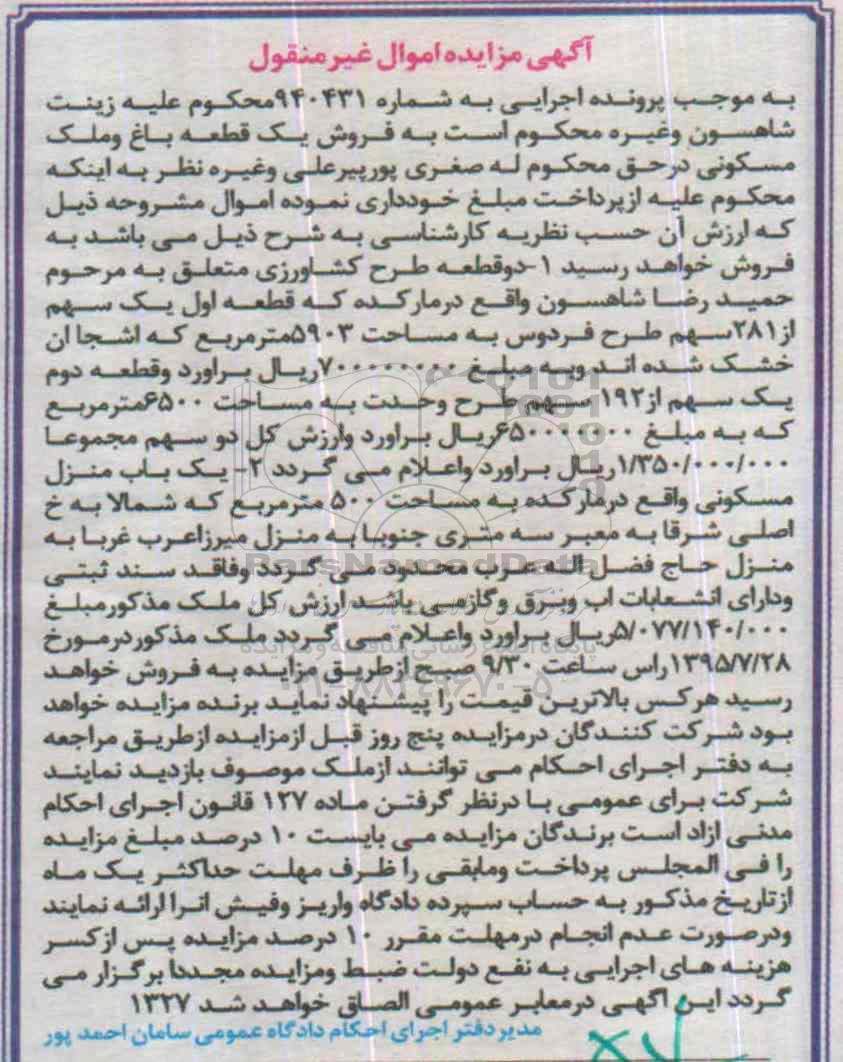 آگهی مزایده اموال غیر منقول
به موجب پرونده اجرایی به شماره ۹۴۰۴۳۱محکوم علیه زینت
شاهسون وغیره محکوم است به فروش یک قطعه باغ وملک
مسکونی درحق محکوم له صغری پورپیرعلی وغیره نظر به اینکه
محکوم علیه ازپرداخت مبلغ خودداری نموده اموال مشروحه ذیل
که ارزش آن حسب نظریه کارشناسی به شرح ذیل می باشد به
فروش خواهد رسید ۱-دوقطعه طرح کشاورزی متعلق به مرحوم
حمید رضا شاهسون واقع درمارکده که قطعه اول یک سهم
از۲۸۱سهم طرح فردوس به مساحت ۵۹۰۳مترمربع که اشجا ان
خشک شده اند وبه مبلغ ۷۰۰۰۰۰۰۰۰ریال براورد وقطعه دوم
یک سهم از۱۹۲ سهم طرح وحدت به مساحت ۶۵۰۰مترمربع
که به مبلغ ۶۵۰۰۰۰۰۰۰ریال براورد وارزش کل دو سهم مجموعا
۱/۳۵۰/۰۰۰/۰۰۰ریال براورد واعلام می گردد ۲- یک باب منزل
مسکونی واقع درمارکده به مساحت ۵۰۰ مترمربع که شمالا به خ
اصلی شرقا به معبر سه متری جنوبا به منزل میرزاعرب غربا به
منزل حاج فضل اله عرب محدود می گردد وفاقد سند ثبتی
ودارای انشعابات اب وبرق وگازمی باشد ارزش کل ملک مذکورمبلغ
۵/۰۷۷/۱۴۰/۰۰۰ریال براورد واعلام می گردد ملک مذکوردرمورخ
۱۳۹۵/۷/۲۸راس ساعت ۹/۳۰ صبح ازطریق مزایده به فروش خواهد
رسید هرکس بالاترین قیمت را پیشنهاد نماید برنده مزایده خواهد
بود شرکت کنندگان درمزایده پنج روز قبل ازمزایده ازطریق مراجعه
به دفتر اجرای احکام می توانند ازملک موصوف بازدید نمایند
شرکت برای عمومی با درنظر گرفتن ماده ۱۲۷ قانون اجرای احکام
مدنی ازاد است برندگان مزایده می بایست ۱۰ درصد مبلغ مزایده
را فی المجلس پرداخت ومابقی را ظرف مهلت حداکثر یک ماه
ازتاریخ مذکور به حساب سپرده دادگاه واریز وفیش انرا ارائه نمایند
ودرصورت عدم انجام درمهلت مقرر ۱۰ درصد مزایده پس ازکسر
هزینه های اجرایی به نفع دولت ضبط ومزایده مجددا برگزار می
گردد این اگهی درمعابر عمومی الصاق خواهد شد ۱۳۲۷
مدیر دفتر اجرای احکام دادگاه عمومی سامان احمد پور
ParsNamadData
پایگاه اطلاع رسانی مناقصه و مزایده
۰۲۱-۸۸۳۴۹۶۷۰-۵